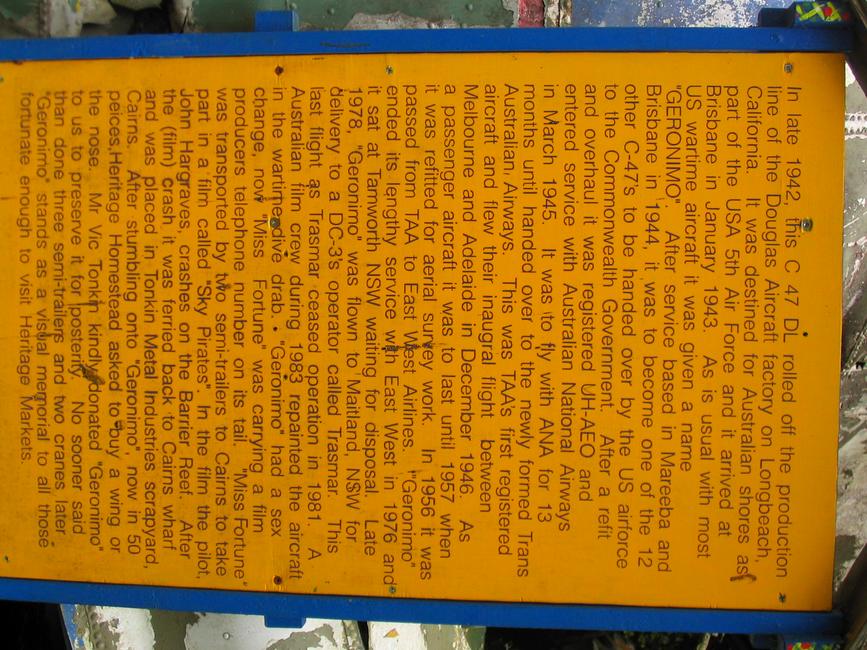 In late 1942, this C 47 DL rolled off the production
line of the Douglas Aircraft factory on Longbeach,
California. It was destined for Australian shores as
part of the USA 5th Air Force and it arrived at
Brisbane in January 1943. As is usual with most
US wartime aircraft it was given a name
"GERONIMO". After service based in Mareeba and
Brisbane in 1944, it was to become one of the 12
other C-47's to be handed over by the US airforce
to the Commonwealth Government. After a refit
and overhaul it was registered UH-AEO and
entered service with Australian National Airways
in March 1945. It was to fly with ANA for 13
months until handed over to the newly formed Trans
Australian Airways. This was TAA's first registered
aircraft and flew their inaugral flight between
Melbourne and Adelaide in December 1946. As
a passenger aircraft it was to last until 1957 when
it was refitted for aerial survey work. In 1956 it was
passed from TAA to East West Airlines. "Geronimo"
ended its lengthy service with East West in 1976 and
it sat at Tamworth NSW waiting for disposal. Late
1978, "Geronimo" was flown to Maitland, NSW for
delivery to a DC-3's operator called Trasmar. This
last flight as Trasmar ceased operation in 1981. A
Australian film crew during 1983 repainted the aircraft
in the wartime olive drab. "Geronimo" had a sex
change, now "Miss Fortune" was carrying a film
producers telephone number on its tail. "Miss Fortune"
was transported by two semi-trailers to Cairns to take
part in a film called "Sky Pirates". In the film the pilot,
John Hargraves, crashes on the Barrier Reef. After
the (film) crash it was ferried back to Cairns wharf
and was placed in Tonkin Metal Industries scrapyard,
Cairns. After stumbling onto "Geronimo" now in 50
peices,Heritage Homestead asked to buy a wing or
the nose. Mr Vic Tonkin kindly donated "Geronimo"
to us to preserve it for posterity. No sooner said
than dome three semi-trailers and two cranes later
"Geronimo" stands as a visual memorial to all those
fortunate enough to visit Heritage Markets.